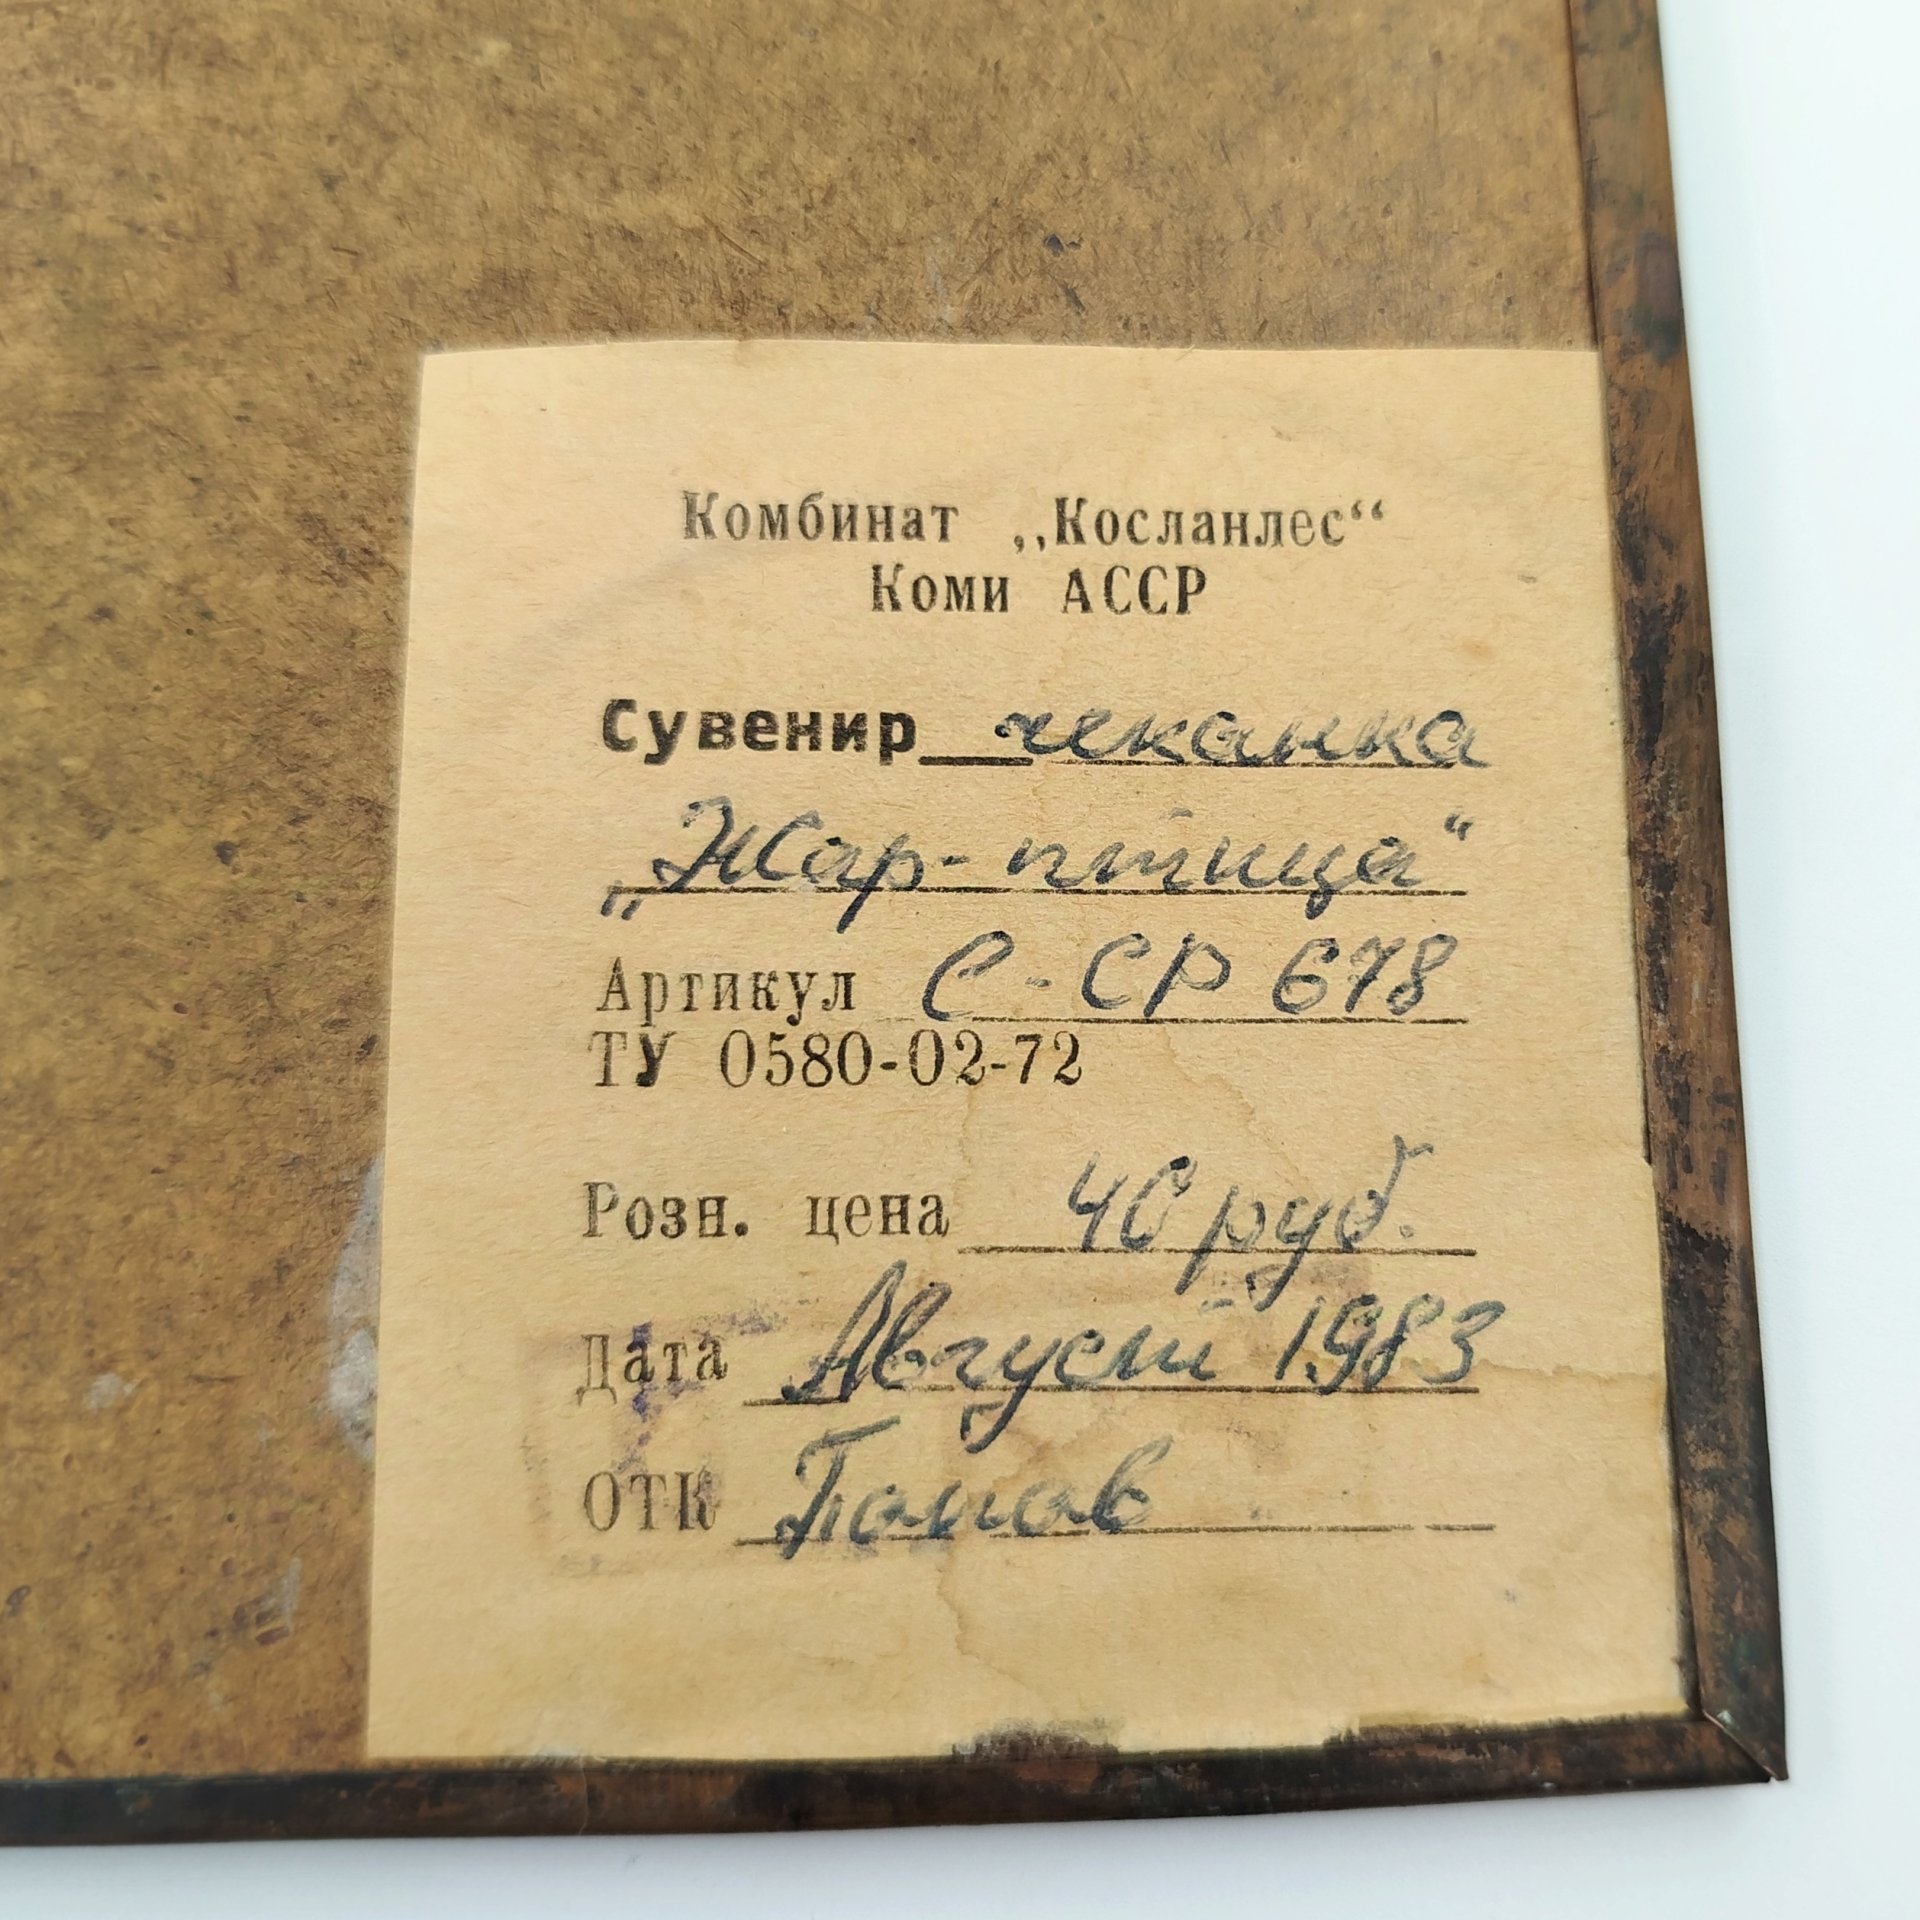 Комбинат „Косланлес“
Коми АССР
Сувенир чеканка
„Жар-птица“
Артикул С-СР 678
ТУ 0580-02-72
Розн. цена 40 руб.
Дата Август 1983
ОТК Попов